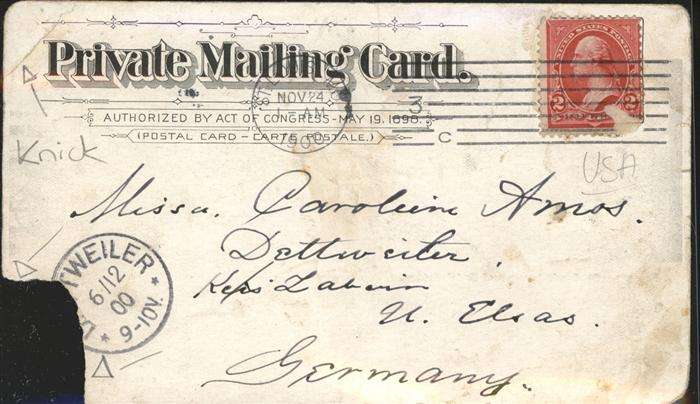 Private Mailing Card.
NOV 24
AM
1900
3
AUTHORIZED BY ACT OF CONGRESS-MAY 19, 1898.
(POSTAL CARD – CARTE POSTALE.)
C
UNITED STATES POSTAGE
2 2
Knick
USA
Missu. Caroline Amos.
Dettweiler,
Zabern
U. Elsas.
Germany.
TWEILER
6/12
00
* 9-10V. *